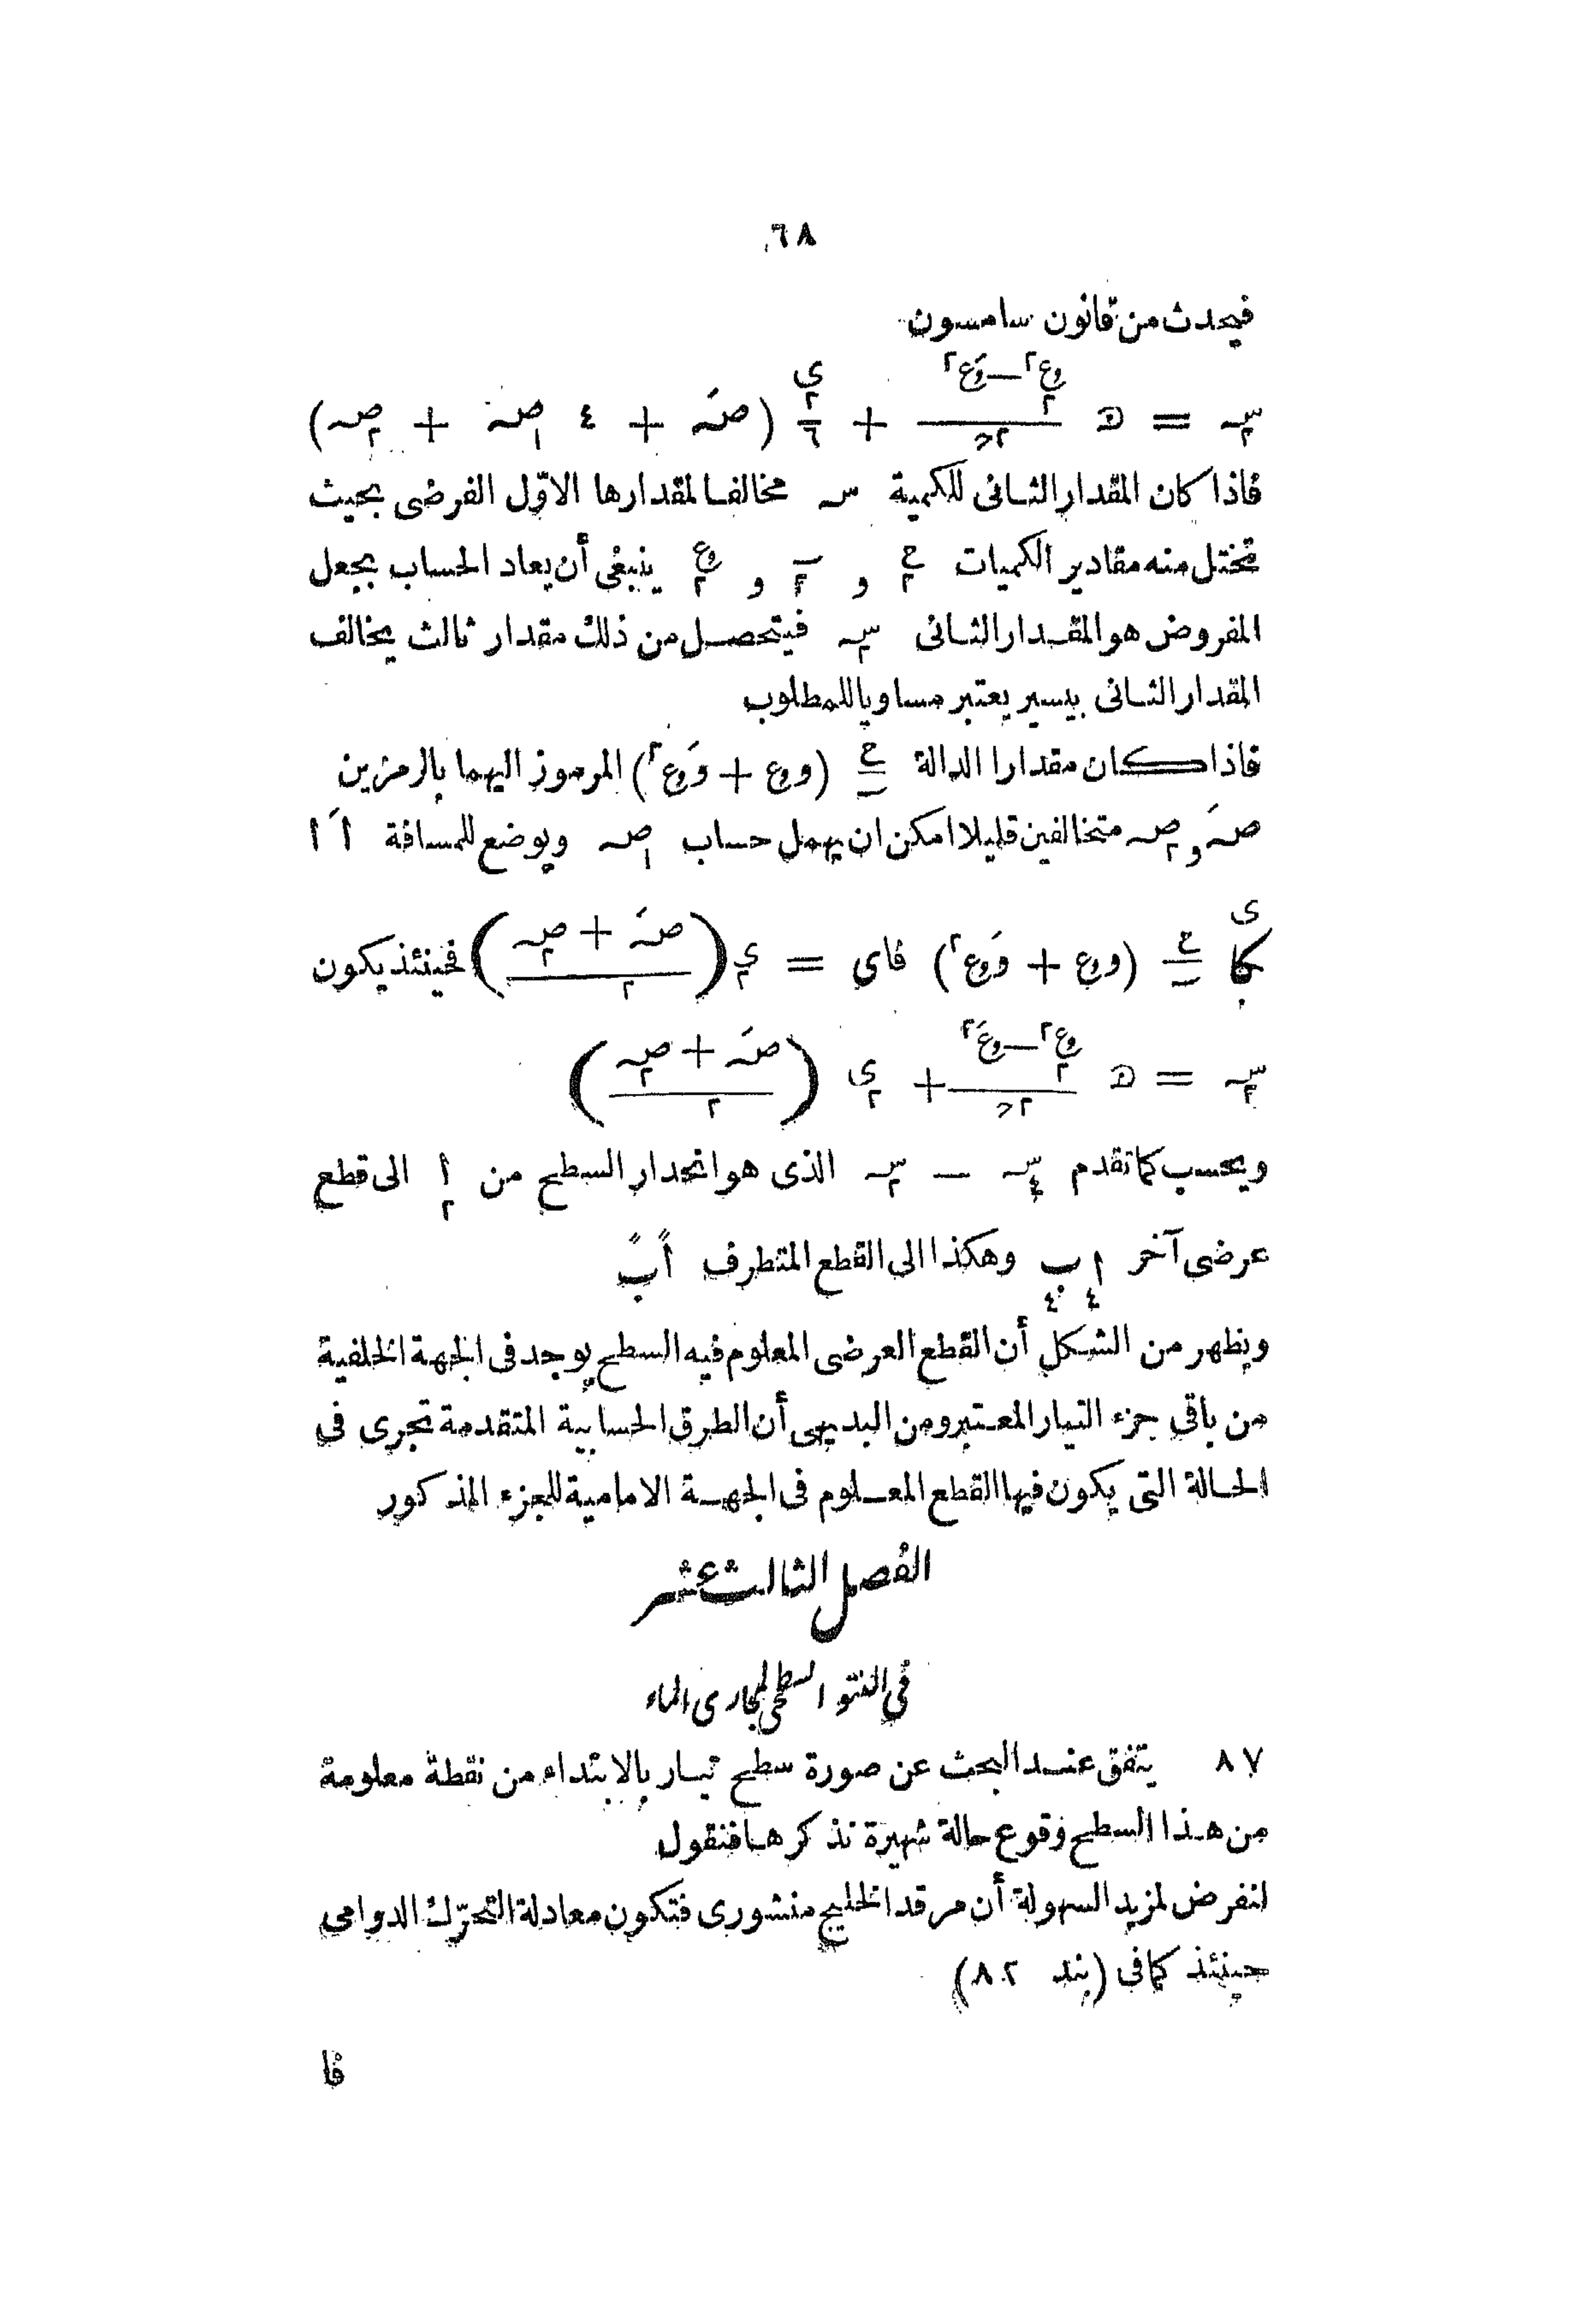 ٦٨
فيحدث من قانون سامسون
سـ٢ = ه (وع٢٢ – وَع٢)/٢ح + ى٢/٦ (صهَ + ٤ صه١ + صه٢)
فاذا كان المقدار الثانى للكمية سـ مخالفا لمقدارها الاوّل الفرضى بحيث
تختل منه مقادير الكميات ع٢ و س٢ و وع٢ ينبغى أن يعاد الحساب بجعل
المفروض هو المقدار الثانى سـ٢ فيتحصل من ذلك مقدار ثالث يخالف
المقدار الثانى بيسير يعتبر مساويا للمطلوب
فاذا كان مقدارا الدالة ع/س (وع + وَع٢) المرموز اليهما بالرمزين
صهَ و صه٢ متخالفين قليلا امكن ان يهمل حساب صه١ ويوضع للمسافة اَ ا
كا ى ع/س (وع + وَع٢) فاى = ى٢ ((صهَ + صه٢)/٢) فحينئذ يكون
سـ٢ = ه (وع٢٢ – وَع٢)/٢ح + ى٢ ((صهَ + صه٢)/٢)
ويحسب كما تقدم سـ٤ – سـ٢ الذى هو انحدار السطح من ا٢ الى قطع
عرضى آخر ا٤ ب٤ وهكذا الى القطع المتطرف اً بً
ويظهر من الشكل أن القطع العرضى المعلوم فيه السطح يوجد فى الجهة الخلفية
من باقى جزء التيار المعتبر ومن البديهى أن الطرق الحسابية المتقدمة تجرى فى
الحالة التى يكون فيها القطع المعلوم فى الجهة الامامية للجزء المذكور
الفصل الثالث عشر
فى النتو السطحى لمجارى الماء
٨٧ يتفق عند البحث عن صورة سطح تيار بالابتداء من نقطة معلومة
من هذا السطح وقوع حالة شهيرة نذكرها فنقول
لنفرض لمزيد السهولة أن مرقد الخليج منشورى فتكون معادلة التحرّك الدوامى
حينئذ كما فى (بند ٨٢)
فا